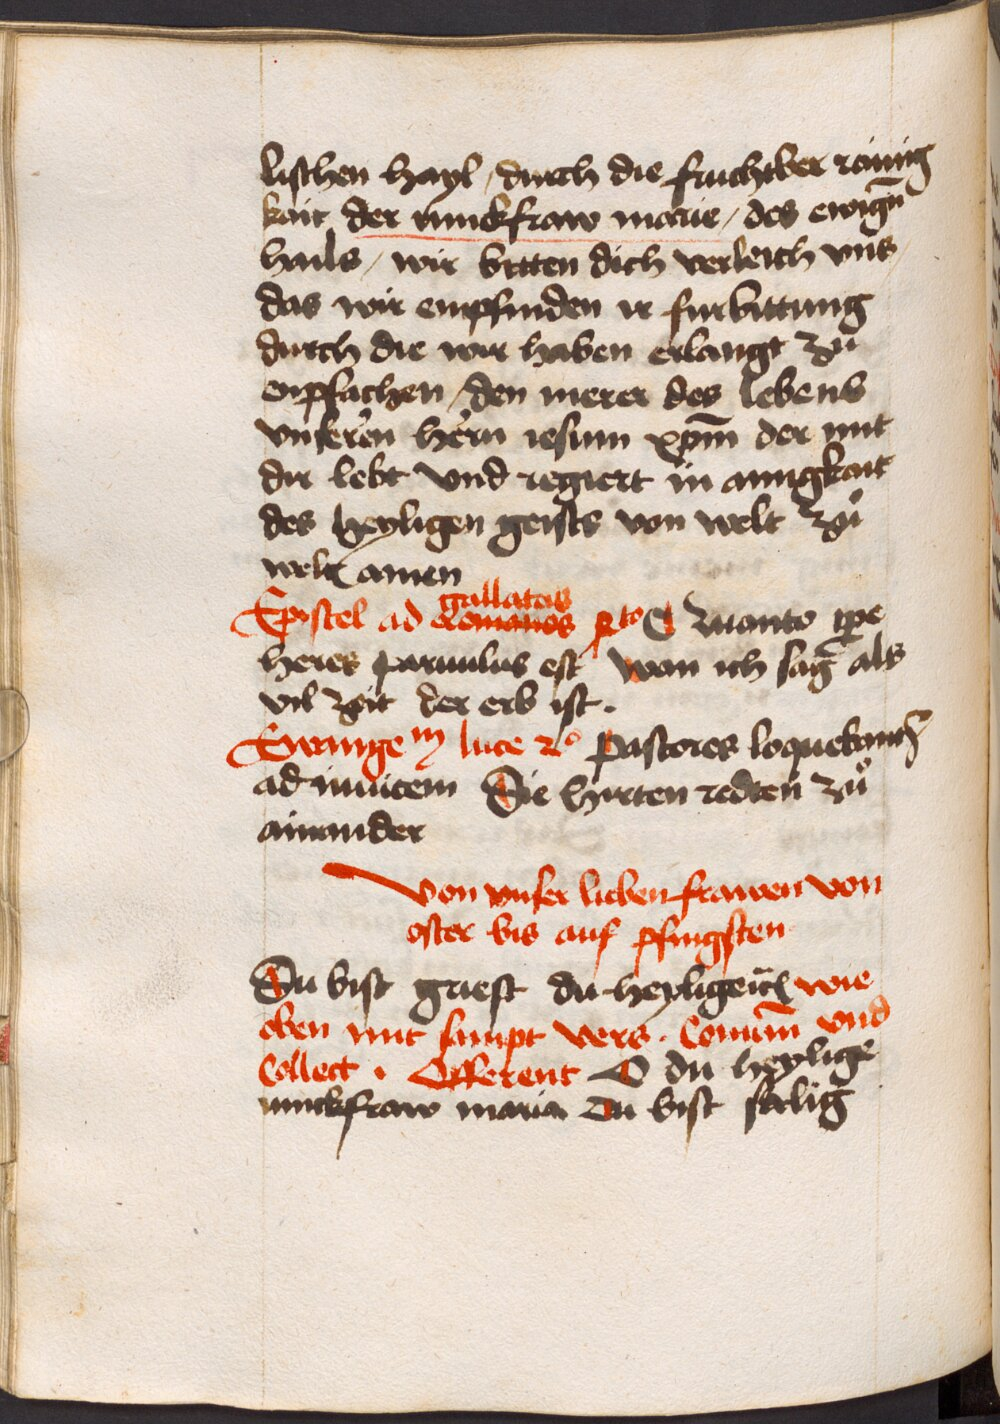 lischen hayl / durch die fruchtber rainig
kait der iunckfraw marie / des ewigñ
hails / wir bitten dich verleich vns
das wir empfinden ir furbittung
durch die wir haben erlangt zů
enpfachen / den merer des lebens
vnseren hern iesum xpm̄ der mit
dir lebt vnd regiert in ainigkait
des heyligen geists von welt zů
welt amen
Epistel ad gallatas romanos 4to Quanto tp̄e
heres paruulus est wan ich sag als
vil zeit der erb ist .
Ewangem luce 2o Pastores loquebant᷑
ad inuicem Die hirten redten zů
ainander
Von vnser lieben frawen von
oster bis auf pfingsten
Du bist griest du heyligei wie
oben mit sampt vers . Comum̄ vnd
Collect . Offerent O du heylige
iunckfraw maria Du bist sälig